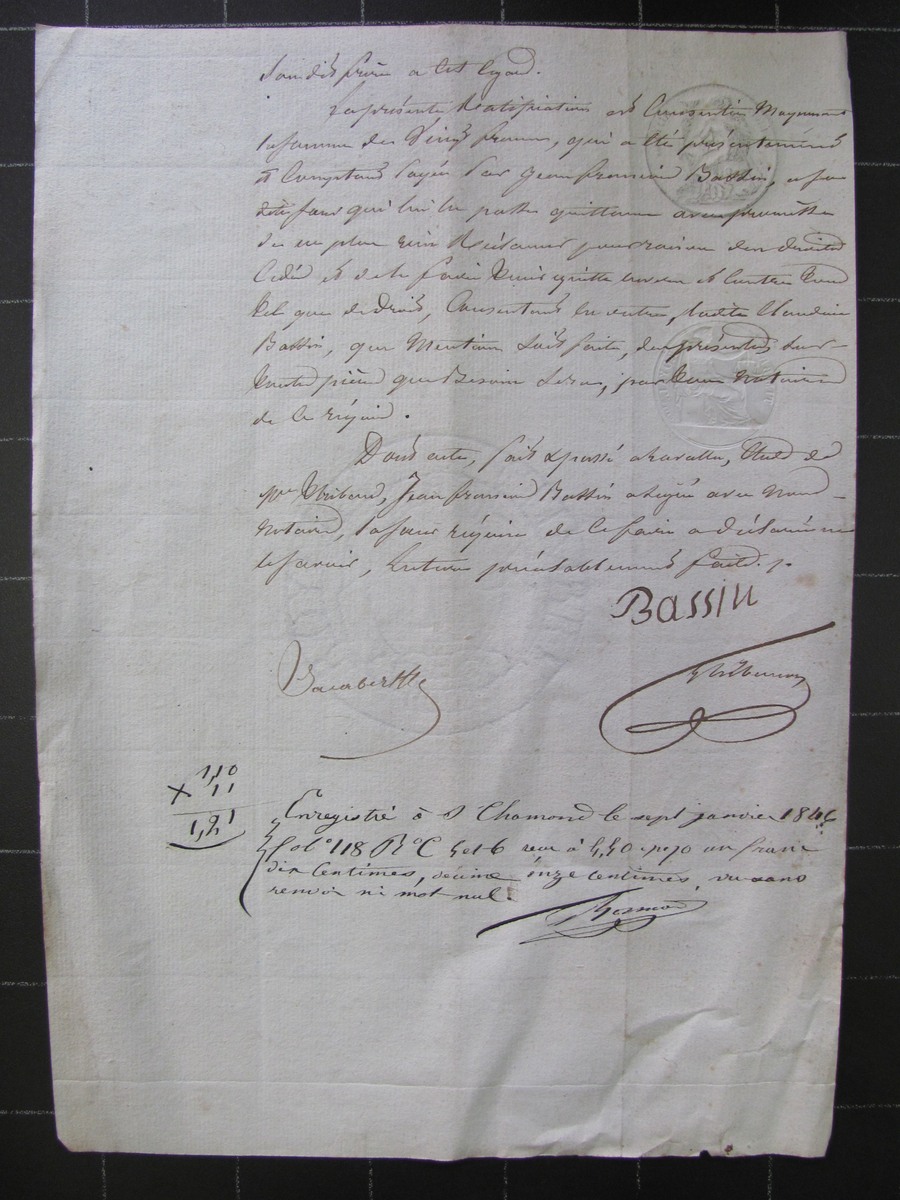 son dit frère a cet égard.
La présente Ratification est Consentie Moyennant
la somme de Vingt francs, qui a été présentement
et Comptant payée par Jean françois Bassin, a sa
dite sœur qui lui en passe quittance avec promesse
de ne plus rien Réclamer pour raison des droits
Cédés et de le faire tenir quitte envers et Contre tous
tel que de droit, Consentant en outre, ladite Claudine
Bassin, que Mention soit faite, des présentes sur
toutes pièces que Besoin sera, par tous Notaires
de ce requis.
Dont acte, fait & passé, Etude de
Me, Jean françois Bassin a signé avec Nous
Notaires, la sœur requise de le faire a déclaré ne
le savoir, lecture préalablement faite.
Bassin
1,10
11
1,21
Enregistré à St Chamond le sept janvier 1846
fol° 118 R° C 5 et 6 reçu à 5,50 p. % un franc
dix Centimes, decime onze centimes, vu sans
renvoi ni mot nul.